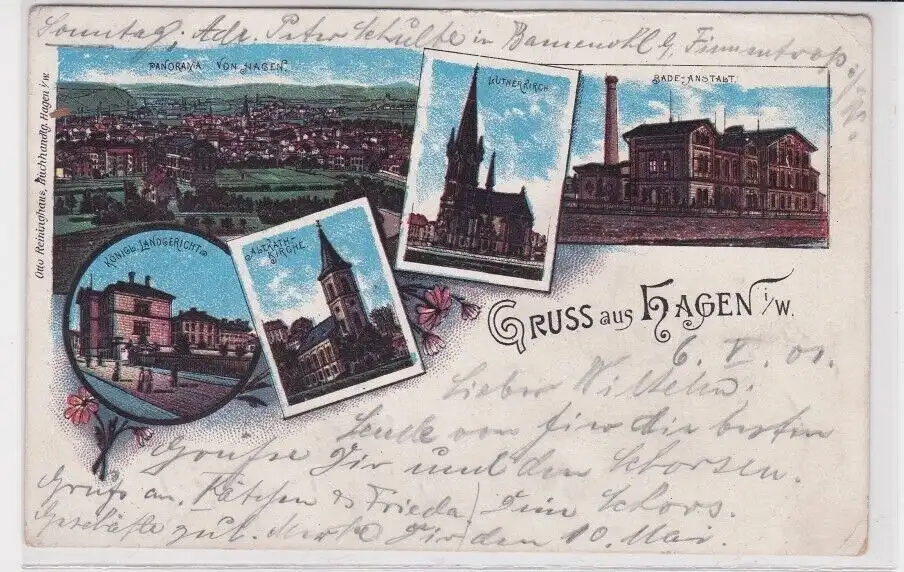 Sonntag, Adr. Peter Schulte in Bamenohl b/ Finnentrop i/W.
PANORAMA VON HAGEN.
LUTHERKIRCH
BADE-ANSTALT.
Otto Reininghaus, Buchhandlg. Hagen i/w.
KÖNIGL. LANDGERICHT
ALTKATH.
KIRCHE
GRUSS aus HAGEN i/W.
6. V. 01.
Lieber Wilhelm!
Sende von hier die besten
Grüße Dir und den Schorsen.
Gruß an Kätchen & Frieda / Dein Schors.
zul. Dir den 10. Mai.